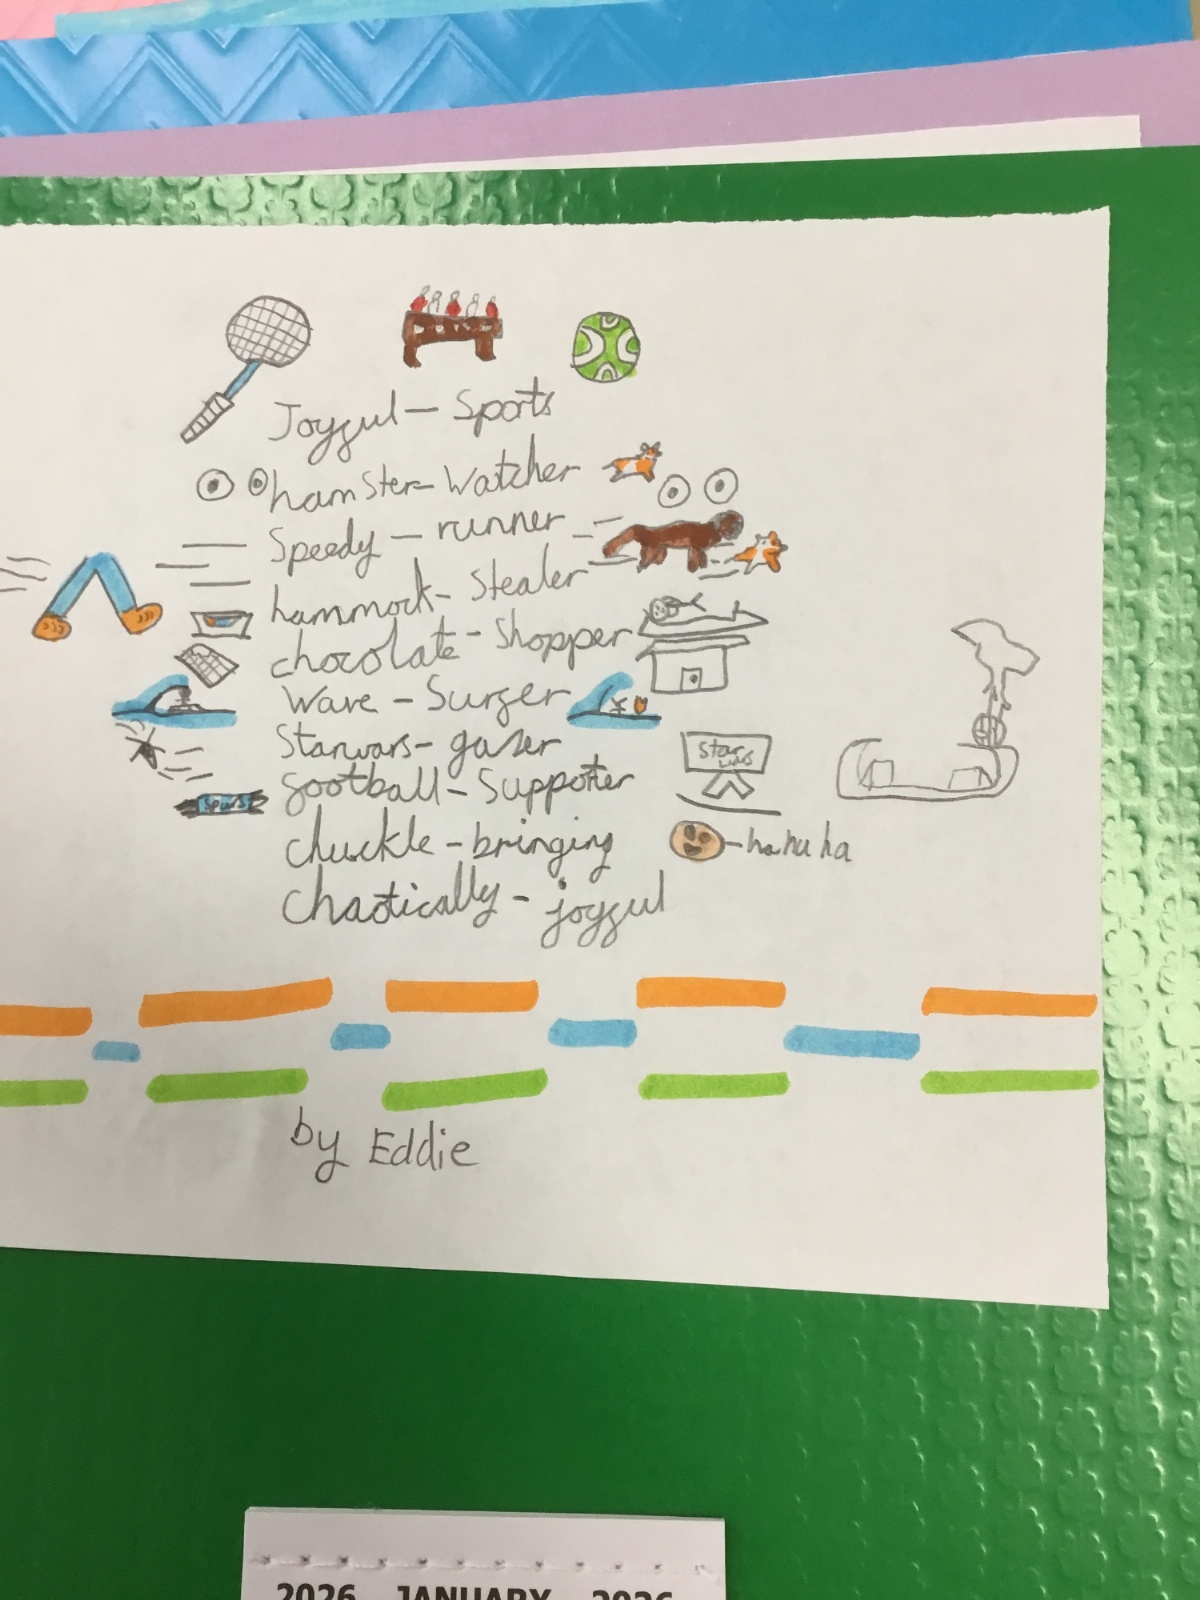 Joyful - Sports
hamster - Watcher
Speedy - runner
hammock - Stealer
chocolate - Shopper
Wave - Surfer
Starwars - gazer
football - Supporter
Star wars
Spurs
chuckle - bringing
- ha ha ha
Chaotically - joyful
by Eddie
2026 JANUARY 2026